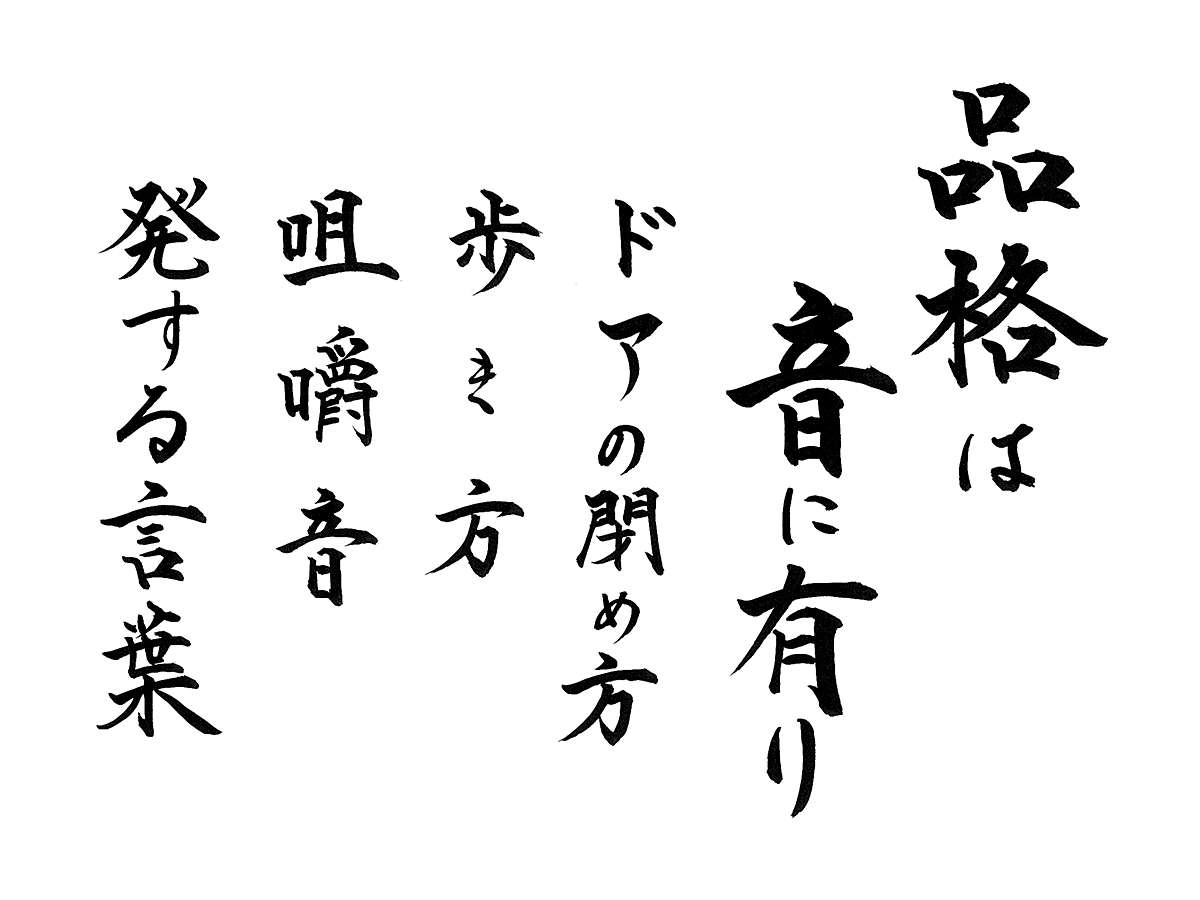 品格は
音に有り
ドアの閉め方
歩き方
咀嚼音
発する言葉